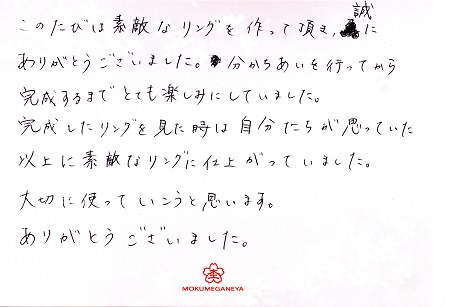 このたびは素敵なリングを作って頂き、誠に
ありがとうございました。分かちあいを行ってから
完成するまでとても楽しみにしていました。
完成したリングを見た時は自分たちが思っていた
以上に素敵なリングに仕上がっていました。
大切に使っていこうと思います。
ありがとうございました。
MOKUMEGANEYA